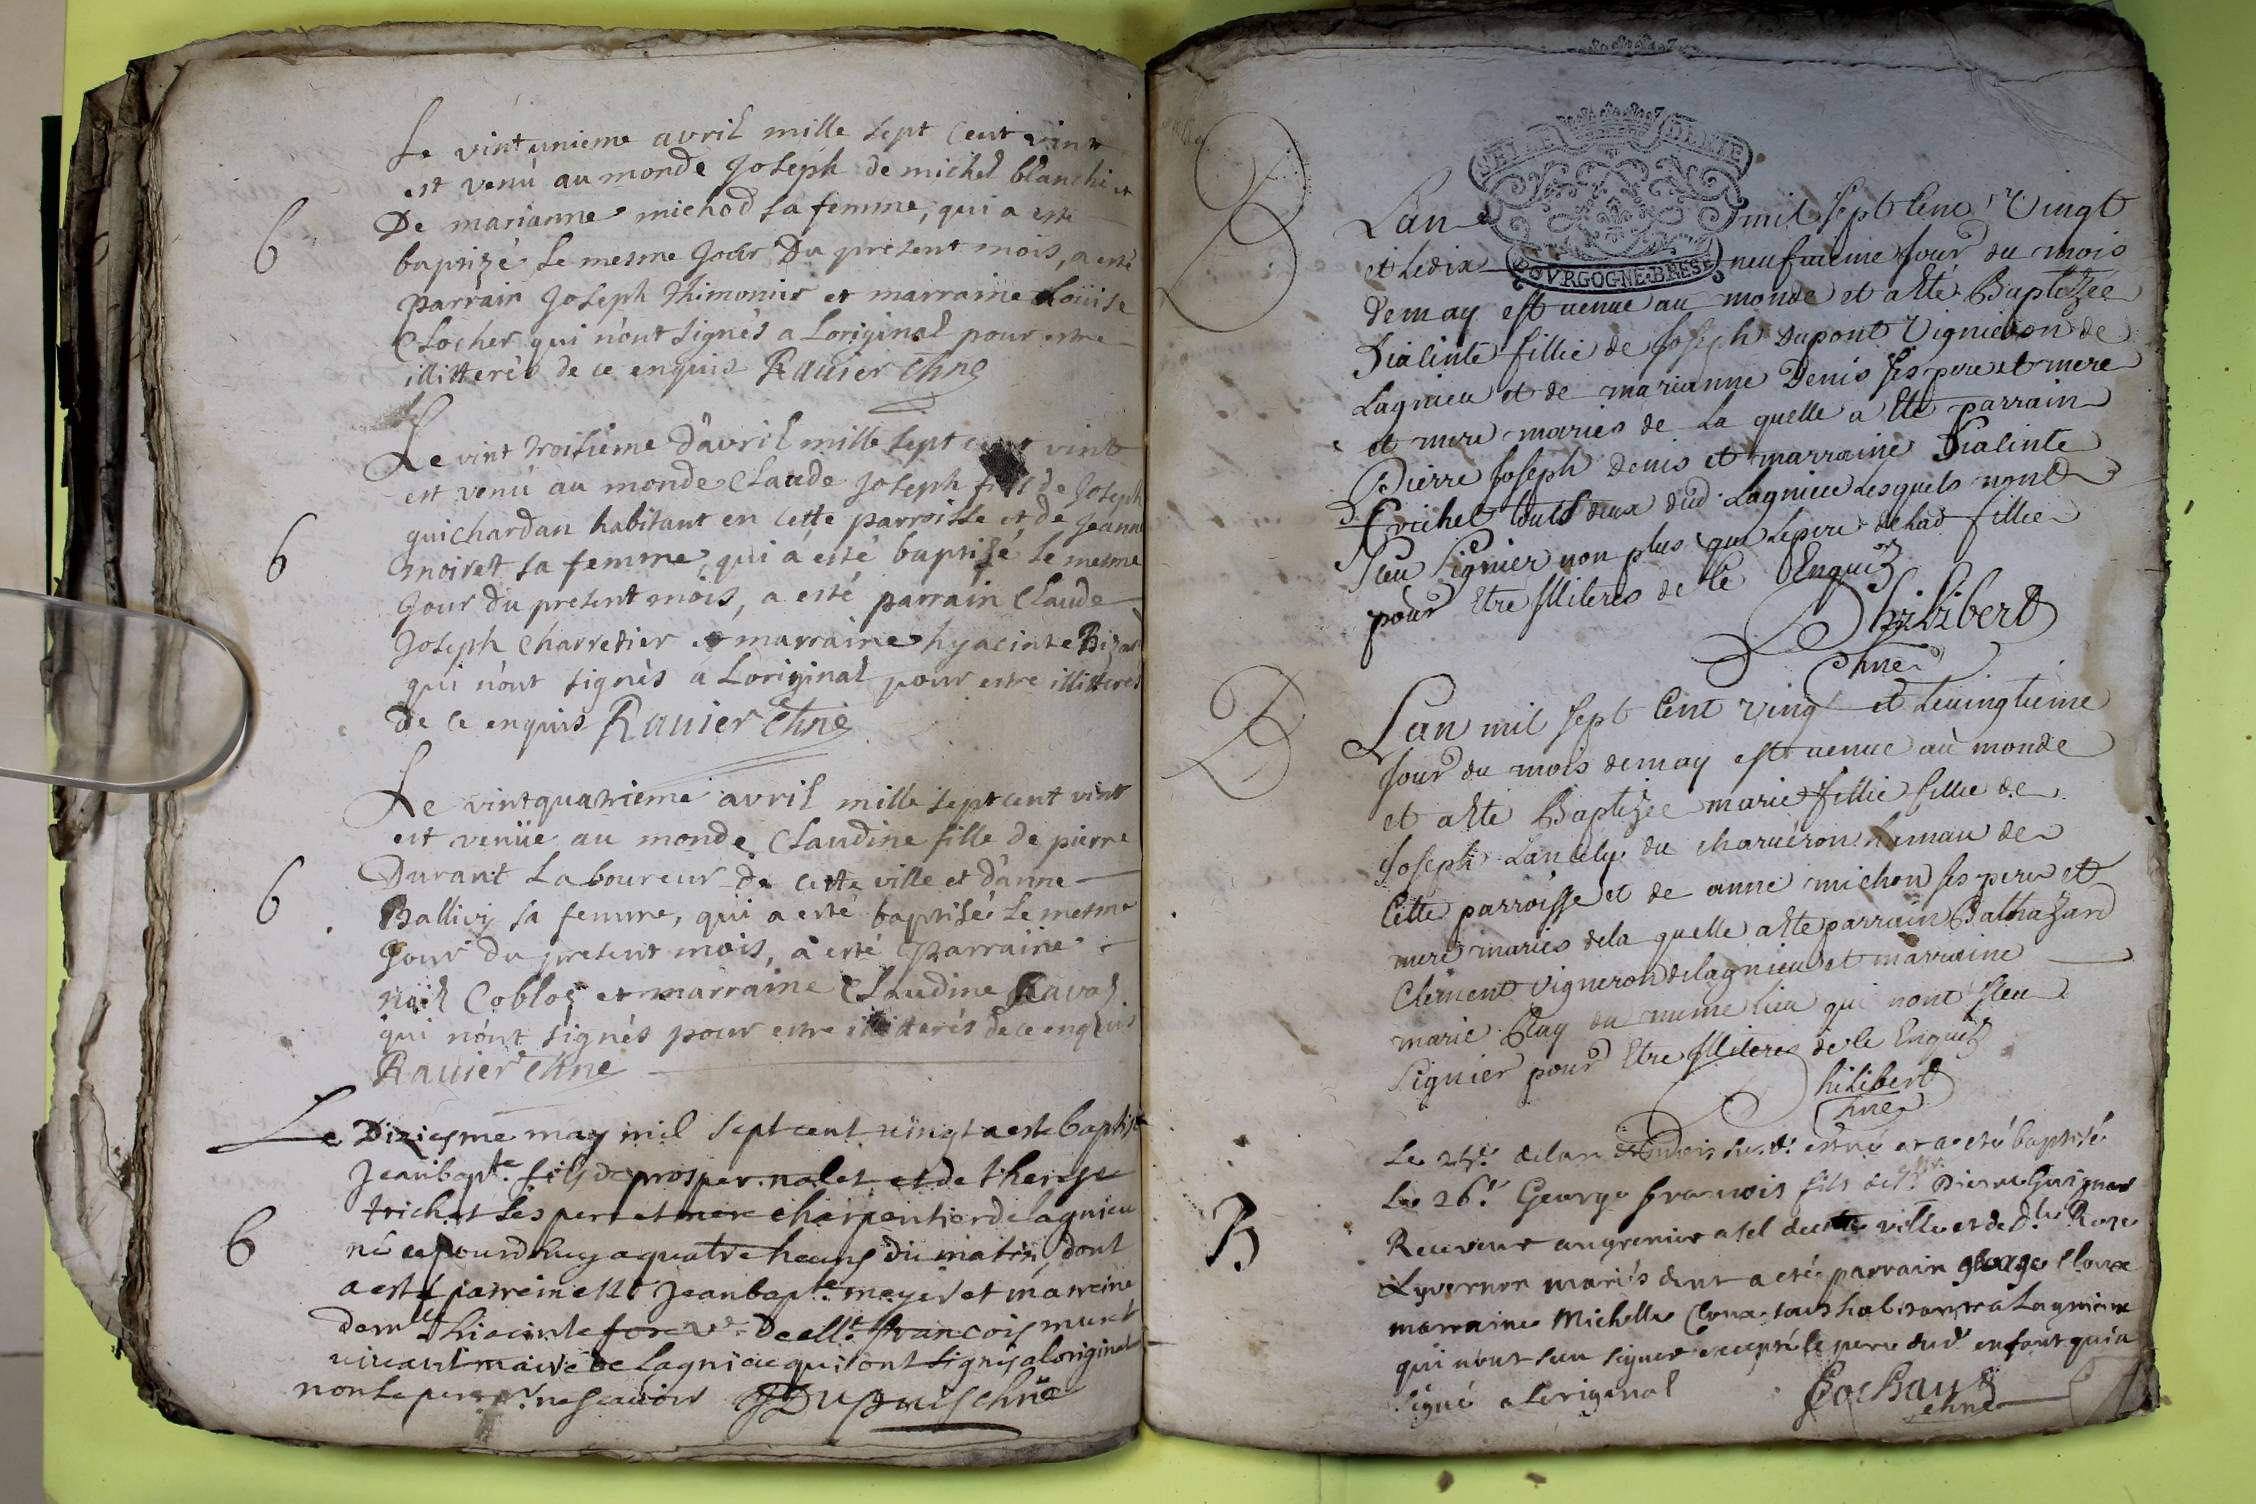 Le vintunieme avril mille sept cent vint
est venu au monde Joseph de michel blanchet
De marianne michod sa femme, qui a esté
6
baptizé le mesme Jour Du present mois, a esté
parrain Joseph Thimonier et marraine Loüise
Clocher qui n'ont signés a Loriginal pour estre
illitterés de ce enquis Rauier Chne
Le vint troisieme d'avril mille sept cent vint
est venu au monde Claude Joseph fils de Joseph
guichardan habitant en cette parroisse et de Jeanne
6
moiret sa femme, qui a esté baptisé le mesme
Jour Du present mois, a esté parrain Claude
Joseph Charretier et marraine hyacinte
qui n'ont signés a Loriginal pour estre illitterés
de ce enquis Rauier Chne
Le vintquatrieme avril mille sept cent vint
est venüe au monde Claudine fille de pierre
Durant Laboureur de cette ville et d'anne
6
Ballivy sa femme, qui a esté baptisée le mesme
Jour du present mois, a esté Parraine
Coblos et marraine Claudine Ravas
qui n'ont signés pour estre illitterés de ce enquis
Rauier Chne
Le Diziesme may mil sept cent vingt a este baptise
Jeanbapte. fils de prosper nalet et de therese
trichet ses pere et mere charpentier de lagnieu
6
né aujourdhuy a quatre heures du matin, dont
a esté parrein Jeanbapte. meyer et marreine
demlle hiacinte de francois muret
vivant maire de Lagnieu qui ont signés aloriginal
non le pere ne scavoir Dupuis chne
GENERALITE
BOVRGOGNE BRESSE
B
Lan mil sept Cent Vingt
et ledix neufuieme Jour du mois
demay est uenue au monde et a ete Baptizée
Dialinte fillie de Joseph Dupont Vignieron de
Lagnieu et de marianne Denis ses pere et mere
et mere mariés de La quelle a Ete parrain
Pierre Joseph denis et marraine Dialinte
touts deux dud. Lagnieu Lesquels nont
sceu Signier non plus que le pere delad fillie
pour Etre Illiteres de Ce Enquis
Philibert
Chne
B
Lan mil sept Cent Vingt et Leuingtieme
Jour du mois demay est uenue au monde
et a Ete Baptizee marie fillie fillie de
Joseph Lancely du charueron hamau de
Cette parroisse et de anne michon ses pere et
mere mariés dela quelle a Ete parrain Balthazard
Clement Vigneron delagnieu et marraine
marie Ray du meme lieu qui nont sceu
Signier pour Etre Illiteres de Ce Enquis
Philibert
Chne
Le 25e. de lan et mois susd. est né et a eté baptisé
B
Le 26e. George francois fils de Sr. Pierre Guignard
Receveur au grenier a sel de cette ville et de Dlle Rose
Lyvernon mariés dont a eté parrain george Cloux
marraine Michelle Cloux tous habitants a Lagnieu
qui n'ont sceu signer excepté le pere dud enfant qui a
signé a Loriginal Cochard
chne